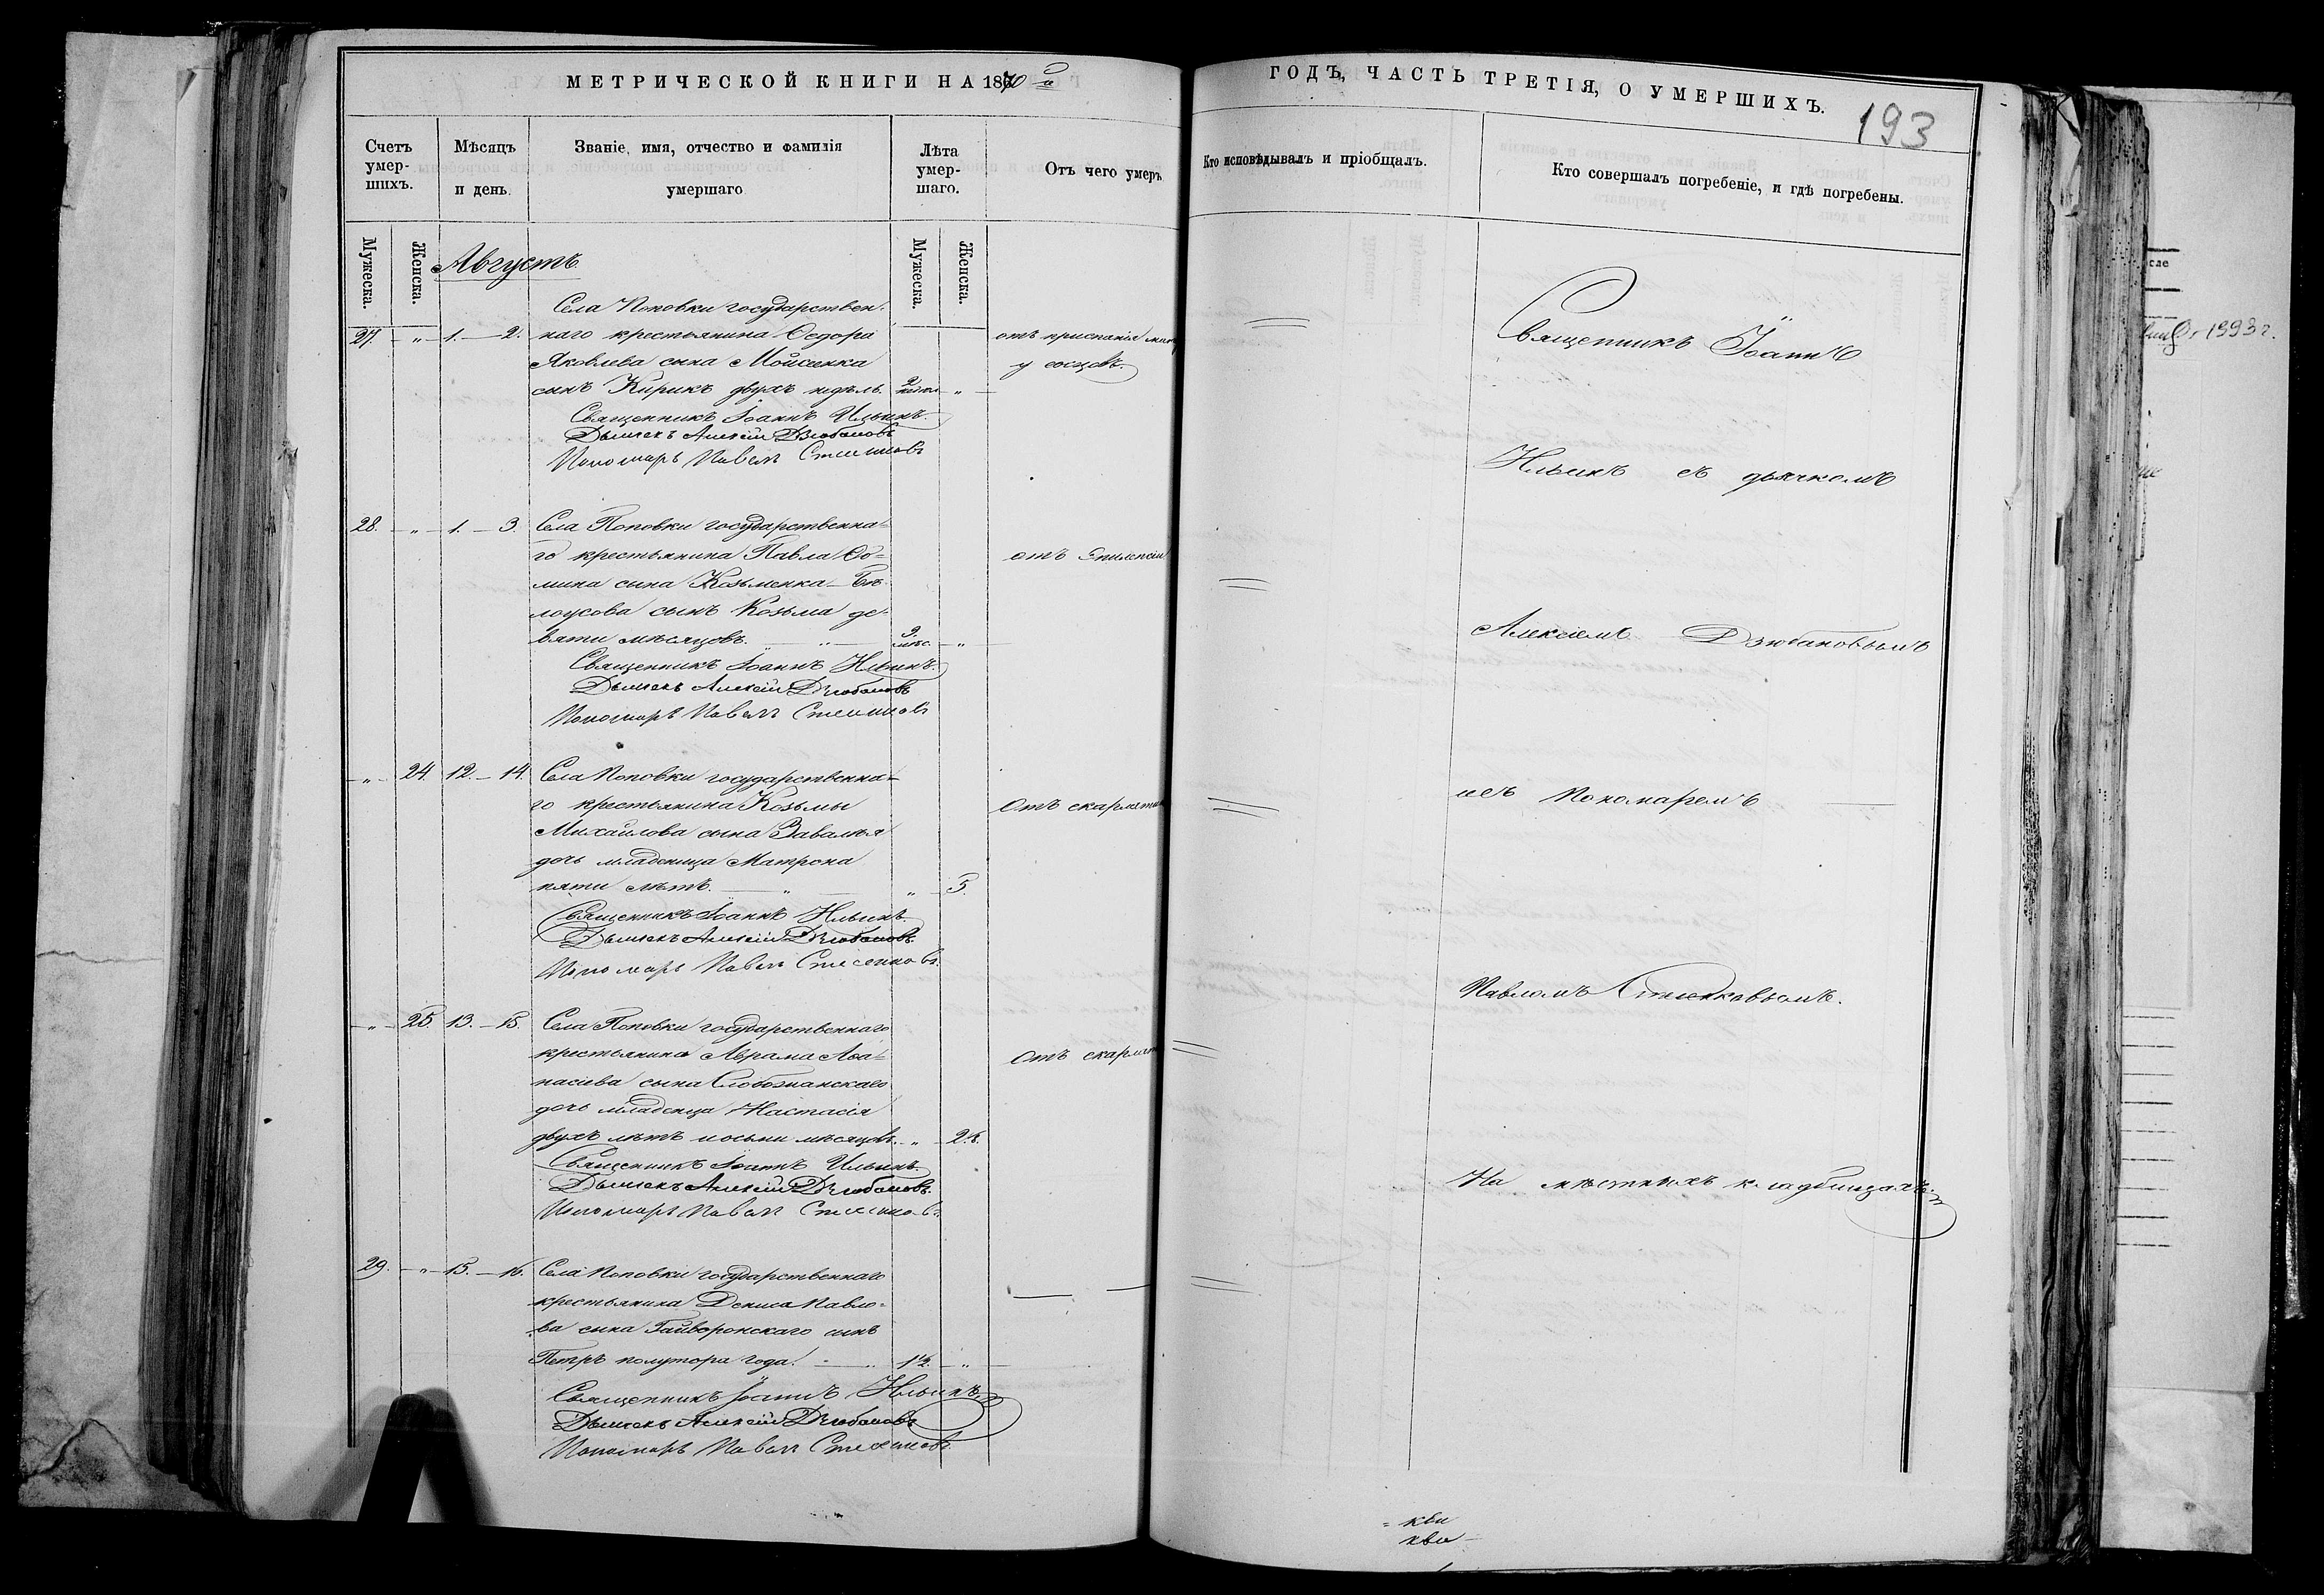 МЕТРИЧЕСКОЙ КНИГИ НА 1870 й
ГОДЪ, ЧАСТЬ ТРЕТІЯ, О УМЕРШИХЪ.
193
Счетъ умер-шихъ.
Мѣсяцъ и день.
Званіе, имя, отчество и фамилія умершаго
Лѣта умер-шаго.
Отъ чего умеръ
Кто исповѣдывалъ и пріобщалъ.
Кто совершалъ погребеніе, и гдѣ погребены.
Мужеска.
Женска.
Мужеска.
Женска.
Августъ
Села Поповки государствен-
27. " 1. 2. наго крестьянина Ѳедора отъ приспанія
Яковлева сына Мойсеенка у сосцовъ.
сынъ Кирикъ двухъ недѣль. 2 "
Священникъ Іоаннъ Ильинъ.
Дьячекъ Алексій Дзюбановъ
Пономарь Павелъ
28. " 1. 3. Села Поповки государственна-
го крестьянина Павла Ѳо- отъ Эпилепсіи
мина сына Козьменка-Бѣ-
лоусова сынъ Козьма де-
вяти мѣсяцовъ. " 9 мѣс. "
Священникъ Іоаннъ Ильинъ.
Дьячекъ Алексій Дзюбановъ
Пономарь Павелъ
" 24. 12. 14. Села Поповки государственна-
го крестьянина Козьмы Отъ скарлатин
Михайлова сына Завалія
дочь младеница Матрона
пяти лѣтъ. " " 5.
Священникъ Іоаннъ Ильинъ.
Дьячекъ Алексій Дзюбановъ.
Пономарь Павелъ
" 25. 13. 15. Села Поповки государственнаго
крестьянина Аврама Аѳа- Отъ скарлат
насіева сына Слобожанскаго
дочь младенца Настасія
двухъ лѣтъ и осьми мѣсяцовъ. " 2.8.
Священникъ Іоаннъ Ильинъ.
Дьячекъ Алексій Дзюбановъ.
Пономарь Павелъ
29. " 15. 16. Села Поповки государственнаго
крестьянина Дениса Павло-
ва сына Гайворонскаго сынъ
Петръ полутора года. " 1½. "
Священникъ Іоаннъ Ильинъ
Дьячекъ Алексій Дзюбановъ
Пономарь Павелъ
Священникъ Іоаннъ
Ильинъ съ дьячкомъ
Алексіемъ Дзюбановымъ
и съ Пономаремъ
Павломъ
На мѣстныхъ кладбищахъ.
1993 г.